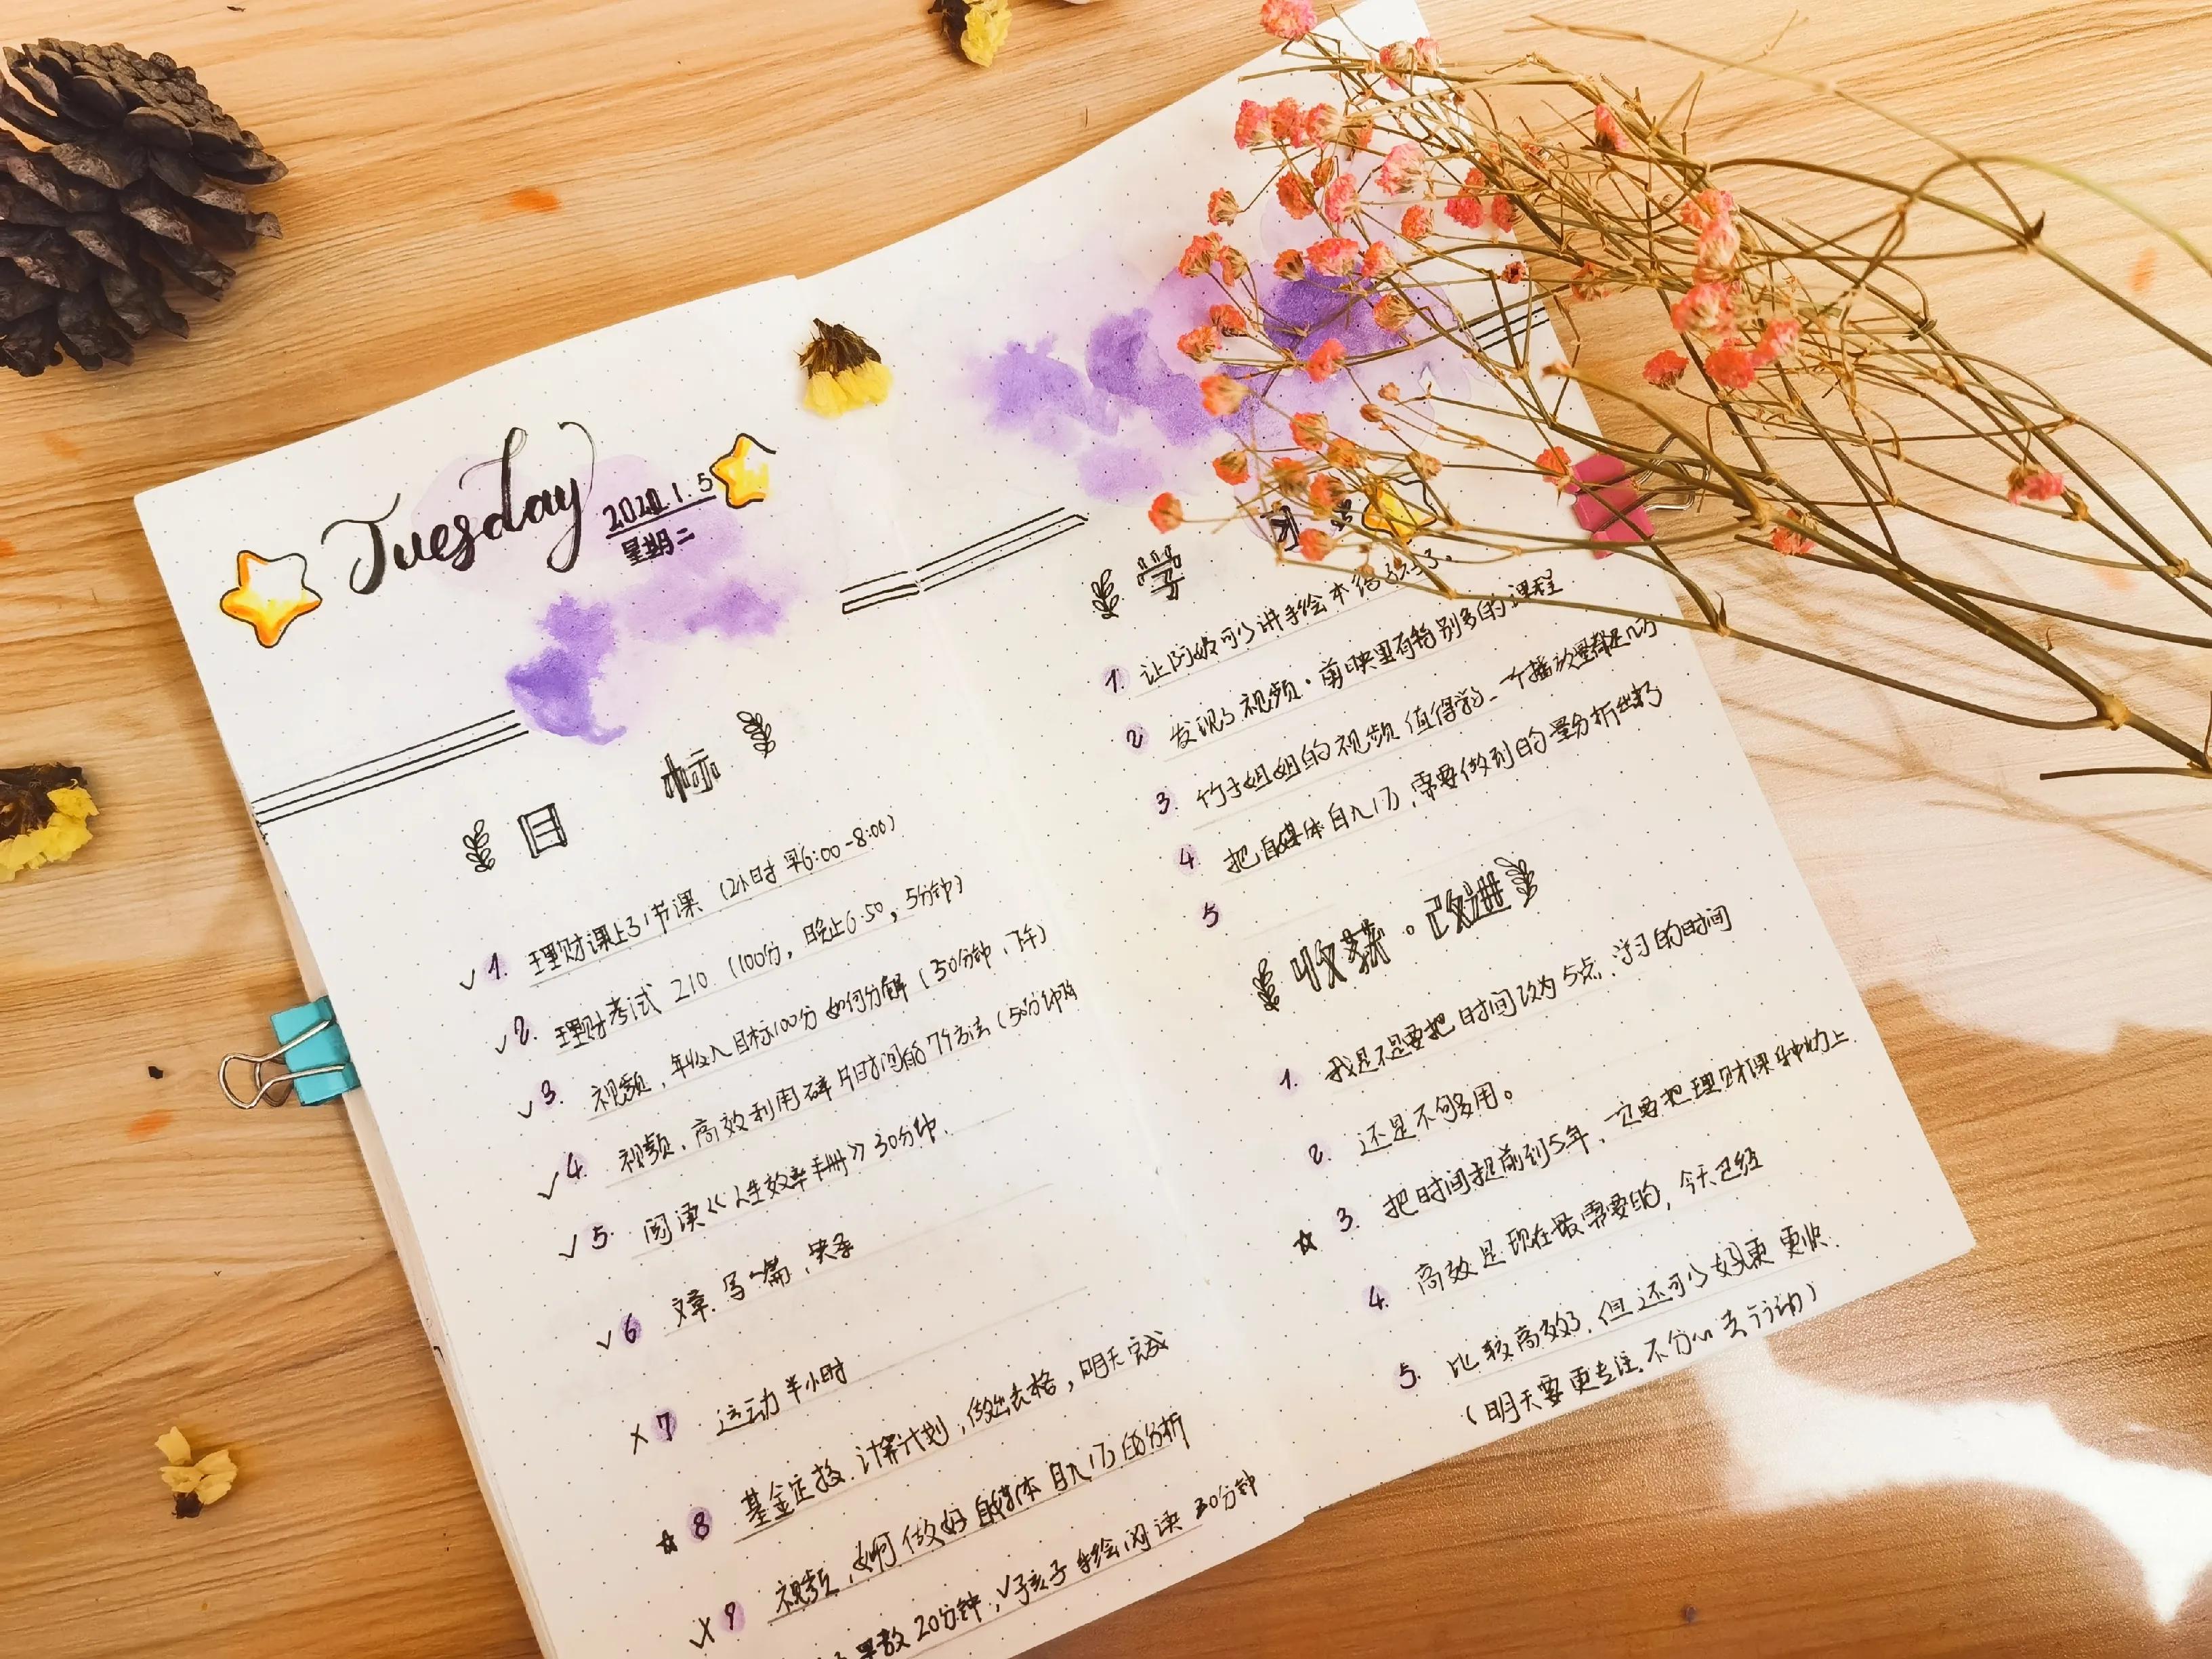 Tuesday
2021.1.5
星期二
目 标
✓ 1. 理财课上31节课（2小时 早6:00-8:00）
✓ 2. 理财考试 210.（100分，晚上6:50，5分钟）
✓ 3. 视频，年收入目标100分 如何分解（30分钟，下午）
✓ 4. 视频，高效利用碎片时间的7个方法（50分钟
✓ 5. 阅读《人生效率手册》30分钟.
✓ 6 文章.写一篇,
✗ 7 运动半小时
☆ 8 基金定投.计算计划，做出表格，明天完成
✓✗ 9 视频，如何做好自媒体 月入1万的分析
早教20分钟，✓孩子手绘阅读 30分钟
学 习
1. 让阿 可以讲手绘本给
2 发现了视频·剪映里有特别多的课程
3. 竹子姐姐的视频值得学习.一个播放量都是
4 把自媒体月入1万，需要做到的量分析出来了
5
收获·改进
1. 我是不是要把时间改为5点.学习的时间
2. 还是不够多用。
☆ 3. 把时间提前到5年，一定要把理财课 上
4. 高效是现在最需要的，今天已经
5. 比较高效了.但还可以好更 更快.
（明天要更专注.不分心去行动）